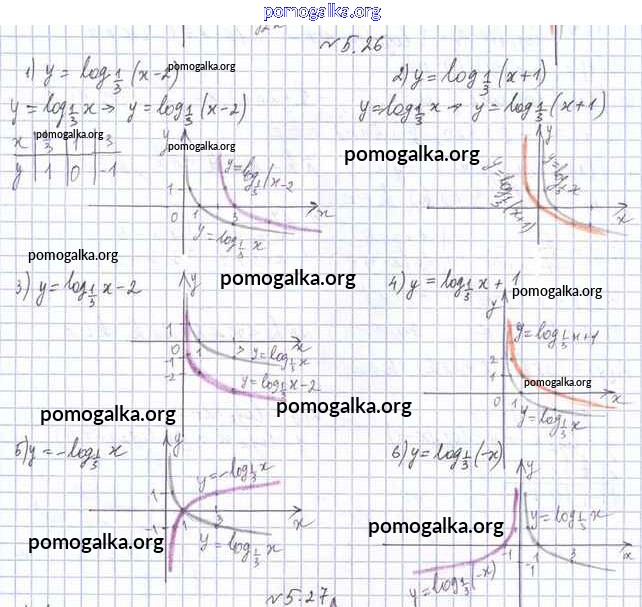 pomogalka.org
№5.26
1) y = log_{1/3}(x-2)
pomogalka.org
2) y = log_{1/3}(x+1)
y = log_{1/3} x → y = log_{1/3}(x-2)
y = log_{1/3} x → y = log_{1/3}(x+1)
pomogalka.org
x 1/3 1 3
y 1 0 -1
pomogalka.org
y
y = log_{1/3}(x-2
1
0 1 3
x
y = log_{1/3} x
y
y = log_{1/3}(x+1)
y = log_{1/3} x
x
pomogalka.org
pomogalka.org
3) y = log_{1/3} x - 2
4) y = log_{1/3} x + 1
pomogalka.org
y
1
0 1 3
-1
-2
x
y = log_{1/3} x
y = log_{1/3} x - 2
y
y = log_{1/3} x + 1
2
1
0 1
x
y = log_{1/3} x
pomogalka.org
pomogalka.org
pomogalka.org
5) y = -log_{1/3} x
6) y = log_{1/3}(-x)
y
y = -log_{1/3} x
1
-1
1 3
x
y = log_{1/3} x
y
y = log_{1/3} x
1
-1 1 3
-1
x
y = log_{1/3}(-x)
pomogalka.org
pomogalka.org
№5.27